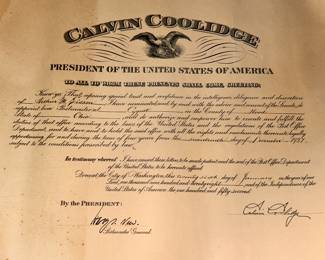 CALVIN COOLIDGE
PRESIDENT OF THE UNITED STATES OF AMERICA
TO ALL TO WHOM THESE PRESENTS SHALL COME, GREETING:
Know ye, That, reposing special trust and confidence in the intelligence, diligence, and discretion
of Arthur M. I have nominated, and by and with the advice and consent of the Senate, do
appoint him Postmaster at in the County of
State of Ohio and do authorize and empower him to execute and fulfill the
duties of that office according to the laws of the United States and the regulations of the Post Office
Department, and to have and to hold the said office with all the rights and emoluments thereunto legally
appertaining for and during the term of four years from the day of
subject to the conditions prescribed by law.
In testimony whereof I have caused these letters to be made patent and the seal of the Post Office Department
of the United States to be hereunto affixed.
Done at the City of Washington, this day of January in the year of our
Lord, one thousand nine hundred and twenty eight and of the Independence of the
United States of America the one hundred and fifty second
By the PRESIDENT:
Harry S. New
Postmaster General.
Calvin Coolidge